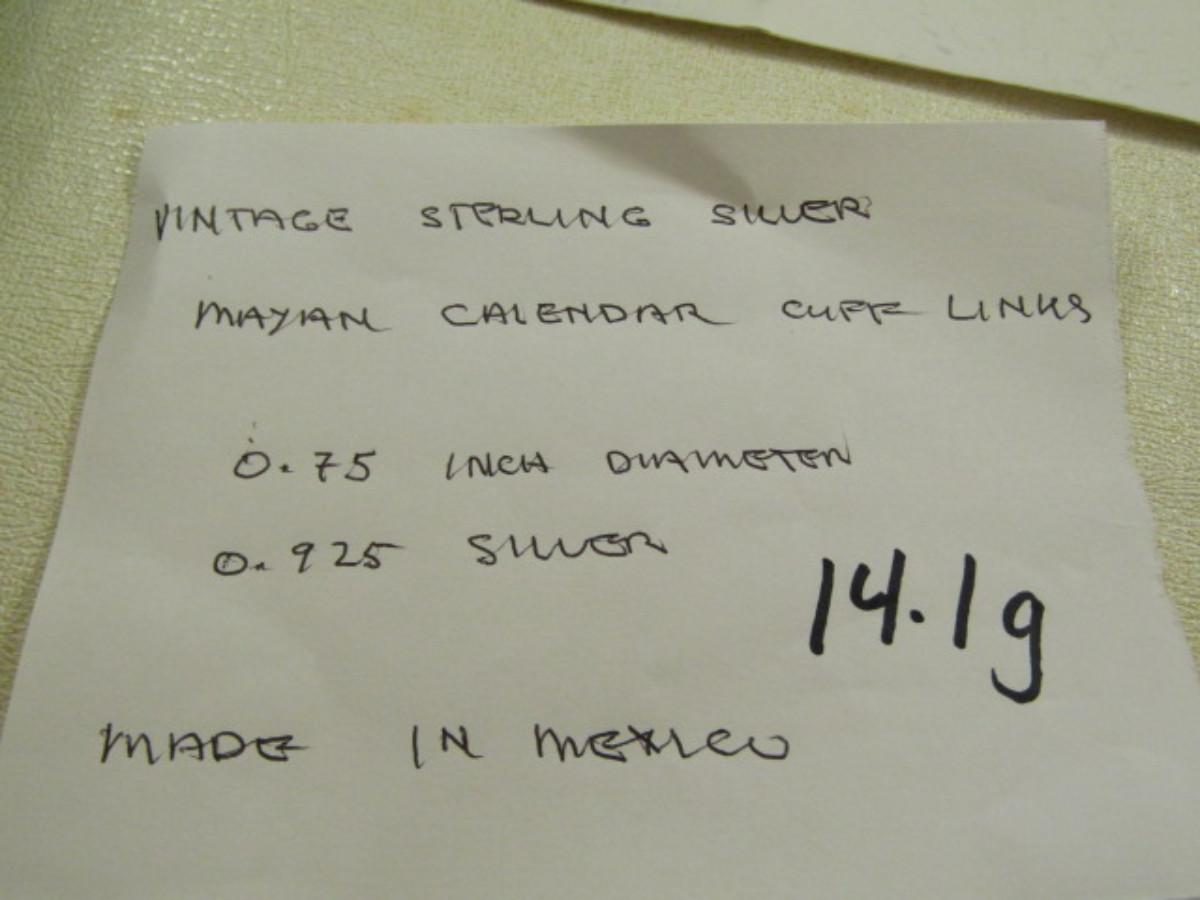 VINTAGE STERLING SILVER
MAYIAN CALENDAR CUFF LINKS
0.75 INCH DIAMETER
0.925 SILVER
14.1g
MADE IN MEXICO